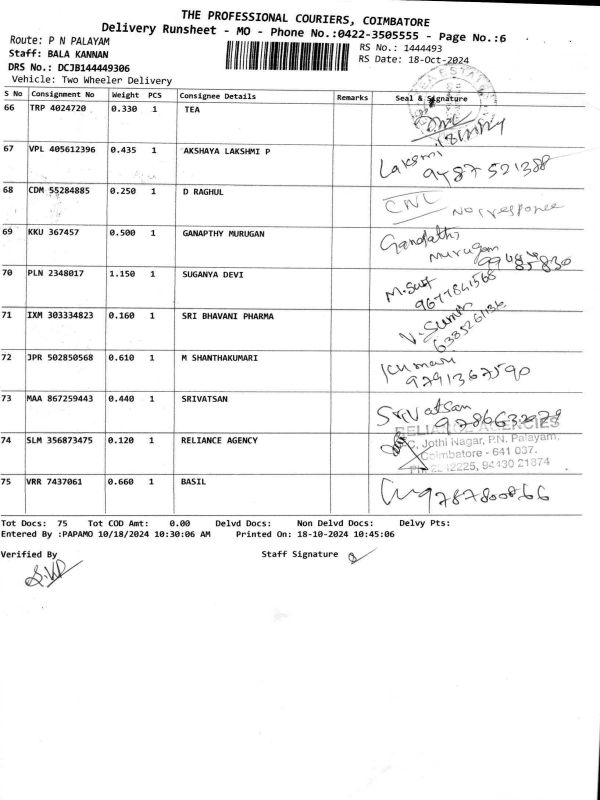 THE PROFESSIONAL COURIERS, COIMBATORE
Delivery Runsheet - MO - Phone No.:0422-3505555 - Page No.:6
Route: P N PALAYAM
RS No.: 1444493
Staff: BALA KANNAN
RS Date: 18-Oct-2024
DRS No.: DCJB144449306
Vehicle: Two Wheeler Delivery
S No Consignment No Weight PCS Consignee Details Remarks Seal & Signature
66 TRP 4024720 0.330 1 TEA
67 VPL 405612396 0.435 1 AKSHAYA LAKSHMI P Laksmi
9487521388
68 CDM 55284885 0.250 1 D RAGHUL CNL No response
69 KKU 367457 0.500 1 GANAPTHY MURUGAN Ganapathi
murugan
70 PLN 2348017 1.150 1 SUGANYA DEVI
9677841568
71 IXM 303334823 0.160 1 SRI BHAVANI PHARMA
6385261136
72 JPR 502850568 0.610 1 M SHANTHAKUMARI Kumari
9791367590
73 MAA 867259443 0.440 1 SRIVATSAN Srivatsan
74 SLM 356873475 0.120 1 RELIANCE AGENCY RELIANCE AGENCIES
C, Jothi Nagar, P.N. Palayam,
Coimbatore - 641 037.
75 VRR 7437061 0.660 1 BASIL 9787800866
Tot Docs: 75 Tot COD Amt: 0.00 Delvd Docs: Non Delvd Docs: Delvy Pts:
Entered By :PAPAMO 10/18/2024 10:30:06 AM Printed On: 18-10-2024 10:45:06
Verified By Staff Signature